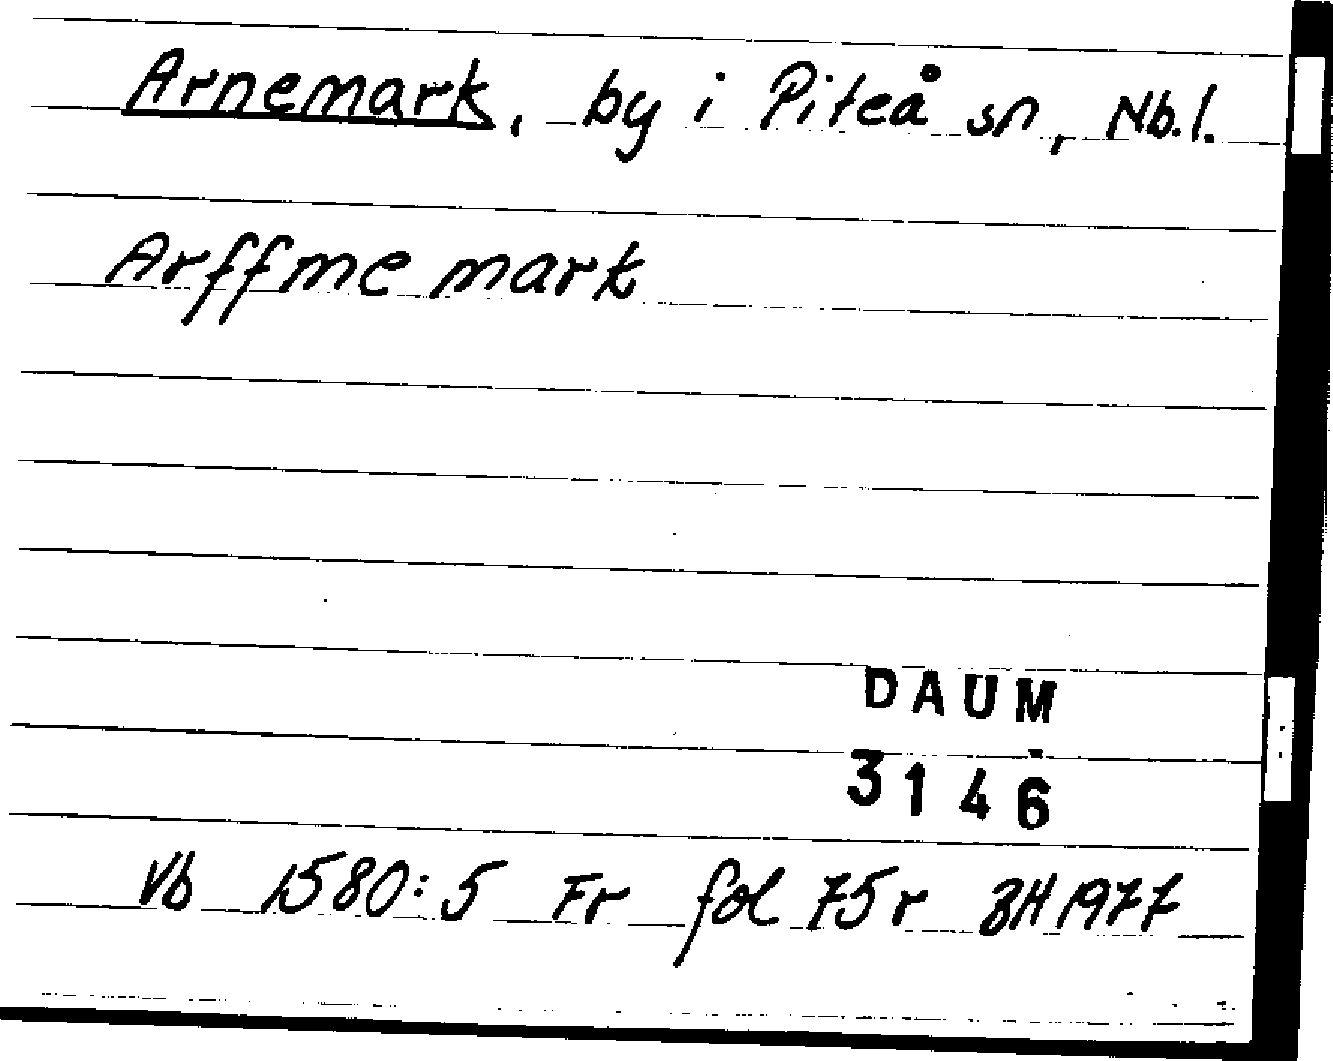 Arnemark, by i Piteå sn, Nb.l.
Arffme mark
DAUM
3146
Vb 1580:5 Fr fol 75r BH 1977